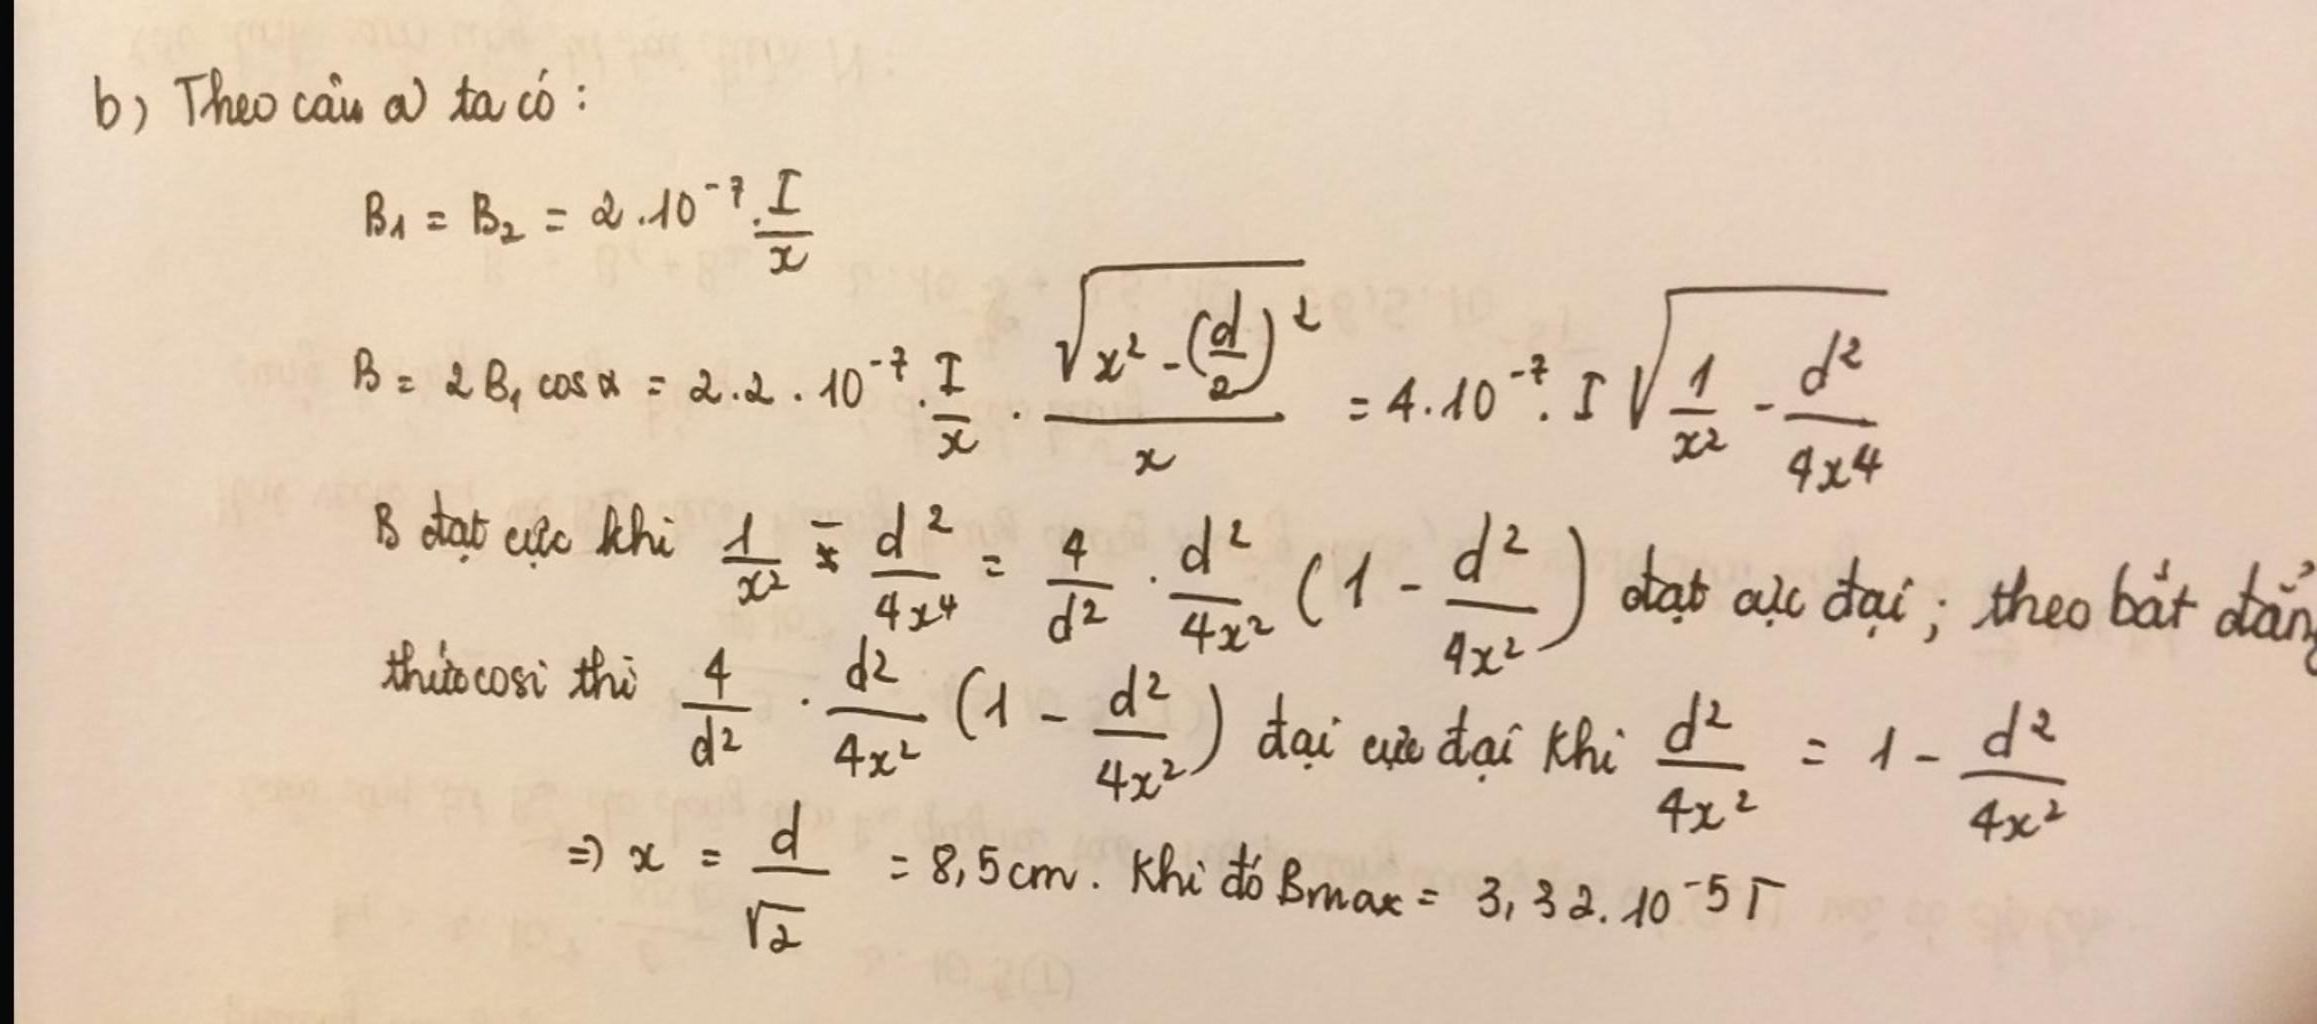 b) Theo câu a) ta có:
B₁ = B₂ = 2.10⁻⁷.I/x
B = 2B₁ cos α = 2.2.10⁻⁷.I/x . √(x² - (d/2)²)/x = 4.10⁻⁷.I√(1/x² - d²/4x⁴)
B đạt cực khi 1/x² - d²/4x⁴ = 4/d² . d²/4x² (1 - d²/4x²) đạt cực đại; theo bất đẳng
thức cosi thì 4/d² . d²/4x² (1 - d²/4x²) đại cực đại khi d²/4x² = 1 - d²/4x²
⇒ x = d/√2 = 8,5cm. Khi đó Bmax = 3,32.10⁻⁵T